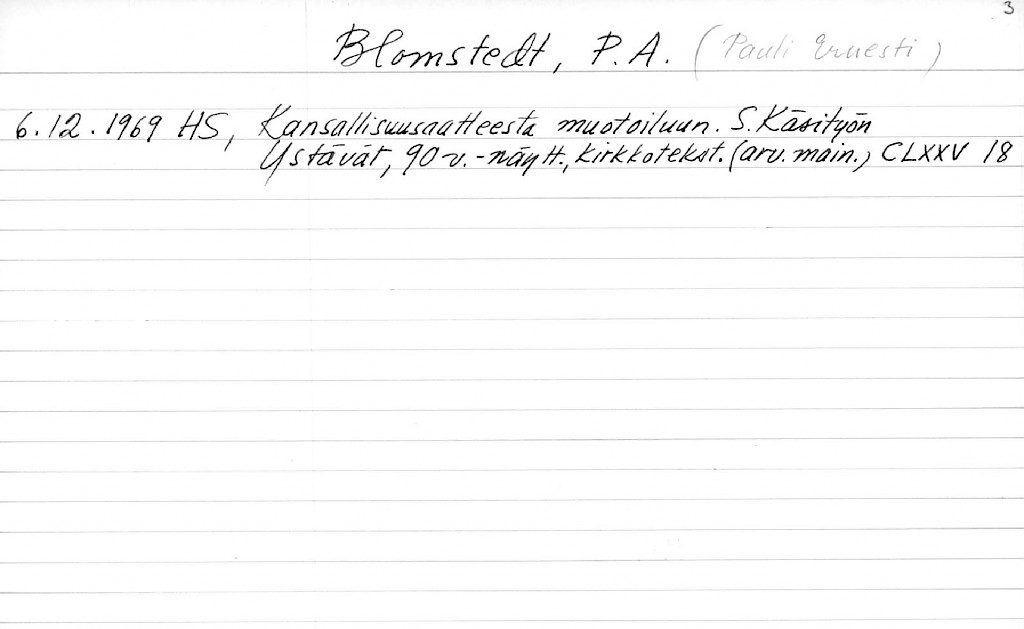 3
Blomstedt, P.A. (Pauli Ernesti)
6.12.1969 HS, Kansallisuusaatteesta muotoiluun. S. Käsityön
Ystävät, 90-v.-näytt., kirkkotekst. (arv. main.) CLXXV 18